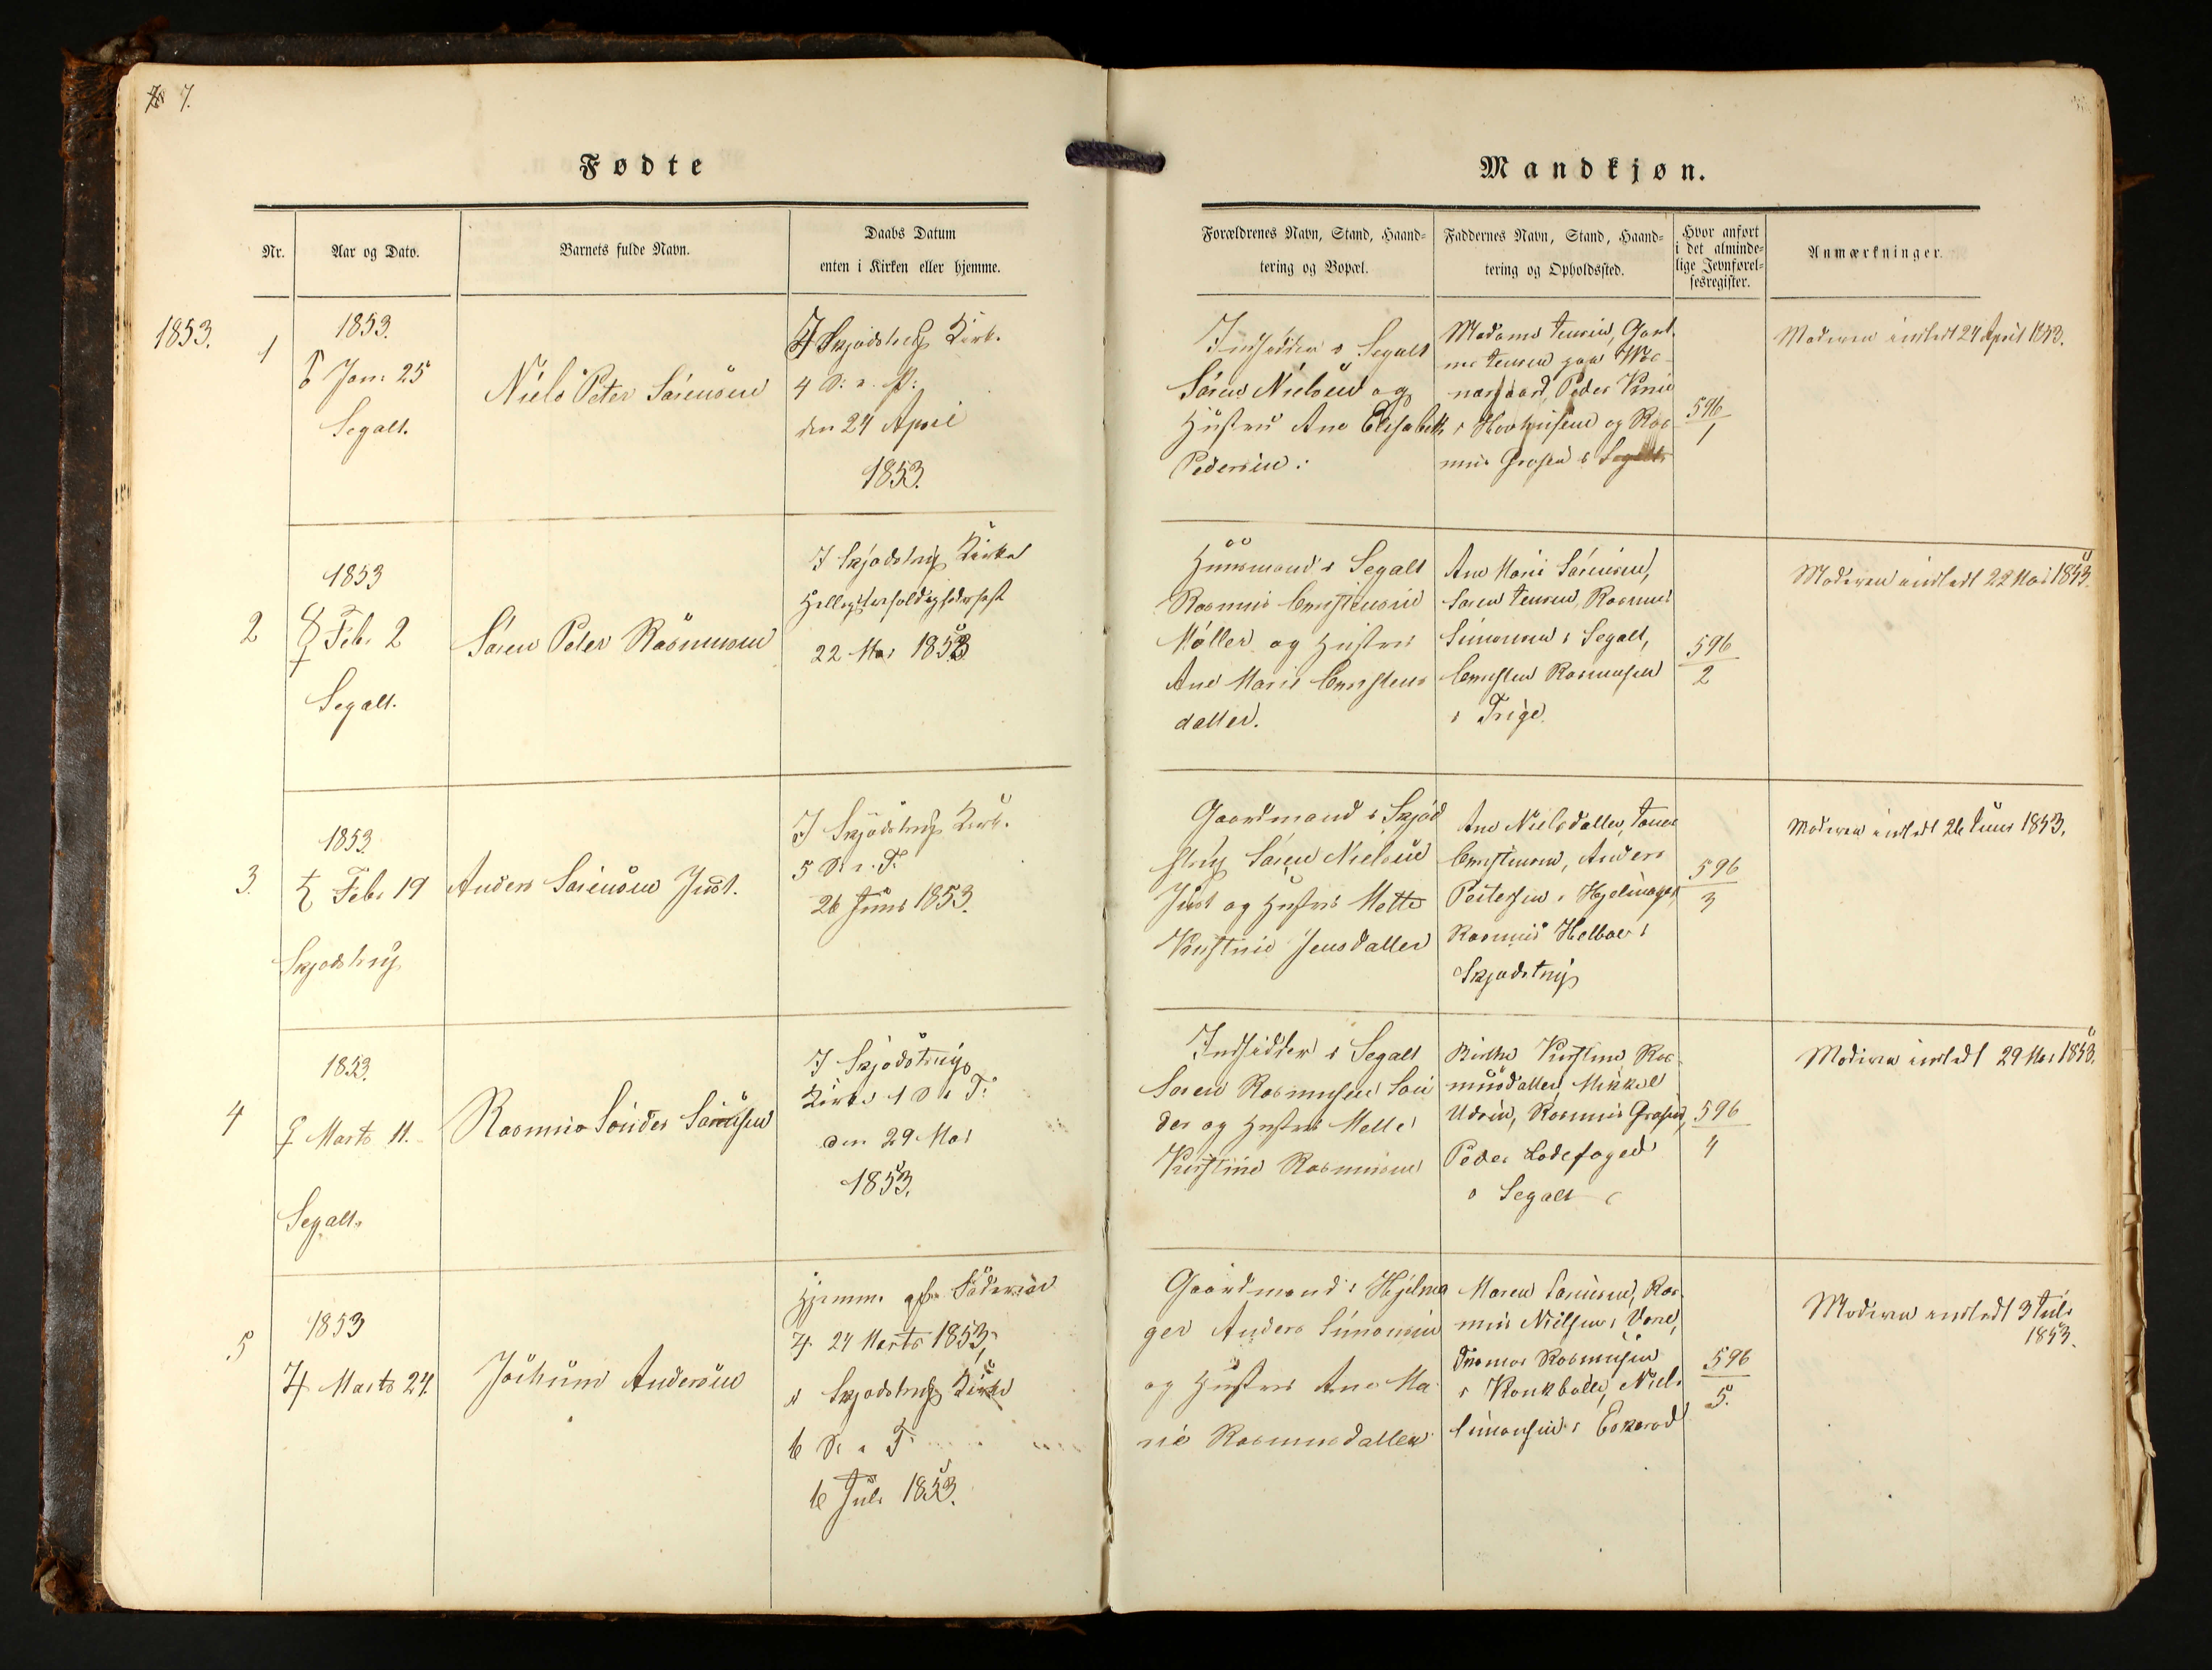 7.
Fødte
Mandkjøn.
Nr.
Aar og Dato.
Barnets fulde Navn.
Daabs Datum
enten i Kirken eller hjemme.
Forældrenes Navn, Stand, Haand=
tering og Bopæl.
Faddernes Navn, Stand, Haand=
tering og Opholdssted.
Hvor anført
i det alminde=
lige Jevnførel=
sesregister.
Anmærkninger.
1853.
1
1853.
Jan: 25
Segalt.
Niels Peter Sörensen
I Skjödstrup Kirke
4 S: e. P:
den 24 April
1853.
Indsidder i Segalt
Sören Nielsen og
Hustru Ane Elisabeth
Pedersen.
Madame Jensen, Gart-
ner Jensen paa
Peder
i Hovhuset og Ras-
mus i Segalt
596
1
Moderen indledt 24 April 1853.
2
1853
Feb: 2
Segalt.
Sören Peter Rasmussen
I Skjödstrup Kirke
Helligtrefoldigheds fest
22 Mai 1853
Huusmand i Segalt
Rasmus Christensen
Møller og Hustru
Ane Marie Christens
datter.
Ane Marie Sörensen,
Sören Jensen, Rasmus
Simonsen i Segalt,
Christen Rasmussen
i Trige.
596
2
Moderen indledt 22 Mai 1853.
3.
1853.
Feb: 19
Skjödstrup
Anders Sörensen Just.
I Skjödstrup Kirke
5 S. e. T.
26 Juni 1853.
Gaardmand i Skjöd
strup Sören Nielsen
Just og Hustru Mette
Kirstine Jensdatter
Ane Nielsdatter,
Christensen, Anders
Petersen i Hjelmager,
Rasmus Helboe i
Skjödstrup
596
3
Moderen indledt 26 Juni 1853.
4
1853.
Marts 11.
Segalt.
Rasmus Sönder Sörensen
I Skjödstrup
Kirke 1 S. e. T:
den 29 Mai
1853.
Indsidder i Segalt
Sören Rasmussen Sön
der og Hustru Mette
Kirstine Rasmussen
Birthe Kirstine Ras-
musdatter, Mikkel
Udsen, Rasmus
Peder Ladefoged
i Segalt
596
4
Moderen indledt 29 Mai 1853.
5
1853
Marts 24.
Jochum Andersen
Hjemme af
24 Marts 1853,
i Skjödstrup Kirke
6 S. e. T.
Juli 1853.
Gaardmand i Hjelma
ger Anders Simonsen
og Hustru Ane Ma
rie Rasmusdatter
Maren Sörensen, Ras-
mus Nielsen i Vorre,
Thomas Rasmussen
i Kankbølle, Niels
Simonsen i Eskerod
596
5.
Moderen indledt 3 Juli
1853.